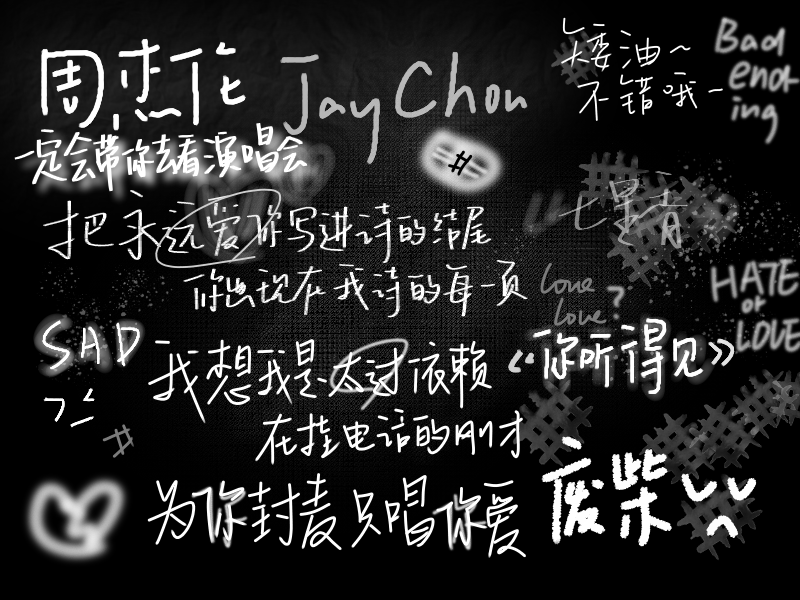 周杰伦 Jay Chou
矮油~
不错哦-
Bad
end
ing
一定会带你去看演唱会
#
把永远爱你写进诗的结尾
七里香
你出现在我诗的每一页
Love
Love?
HATE
or
LOVE
SAD
我想我是太过依赖
《“你听得见》
在挂电话的刚才
#
为你封麦只唱你爱
废柴